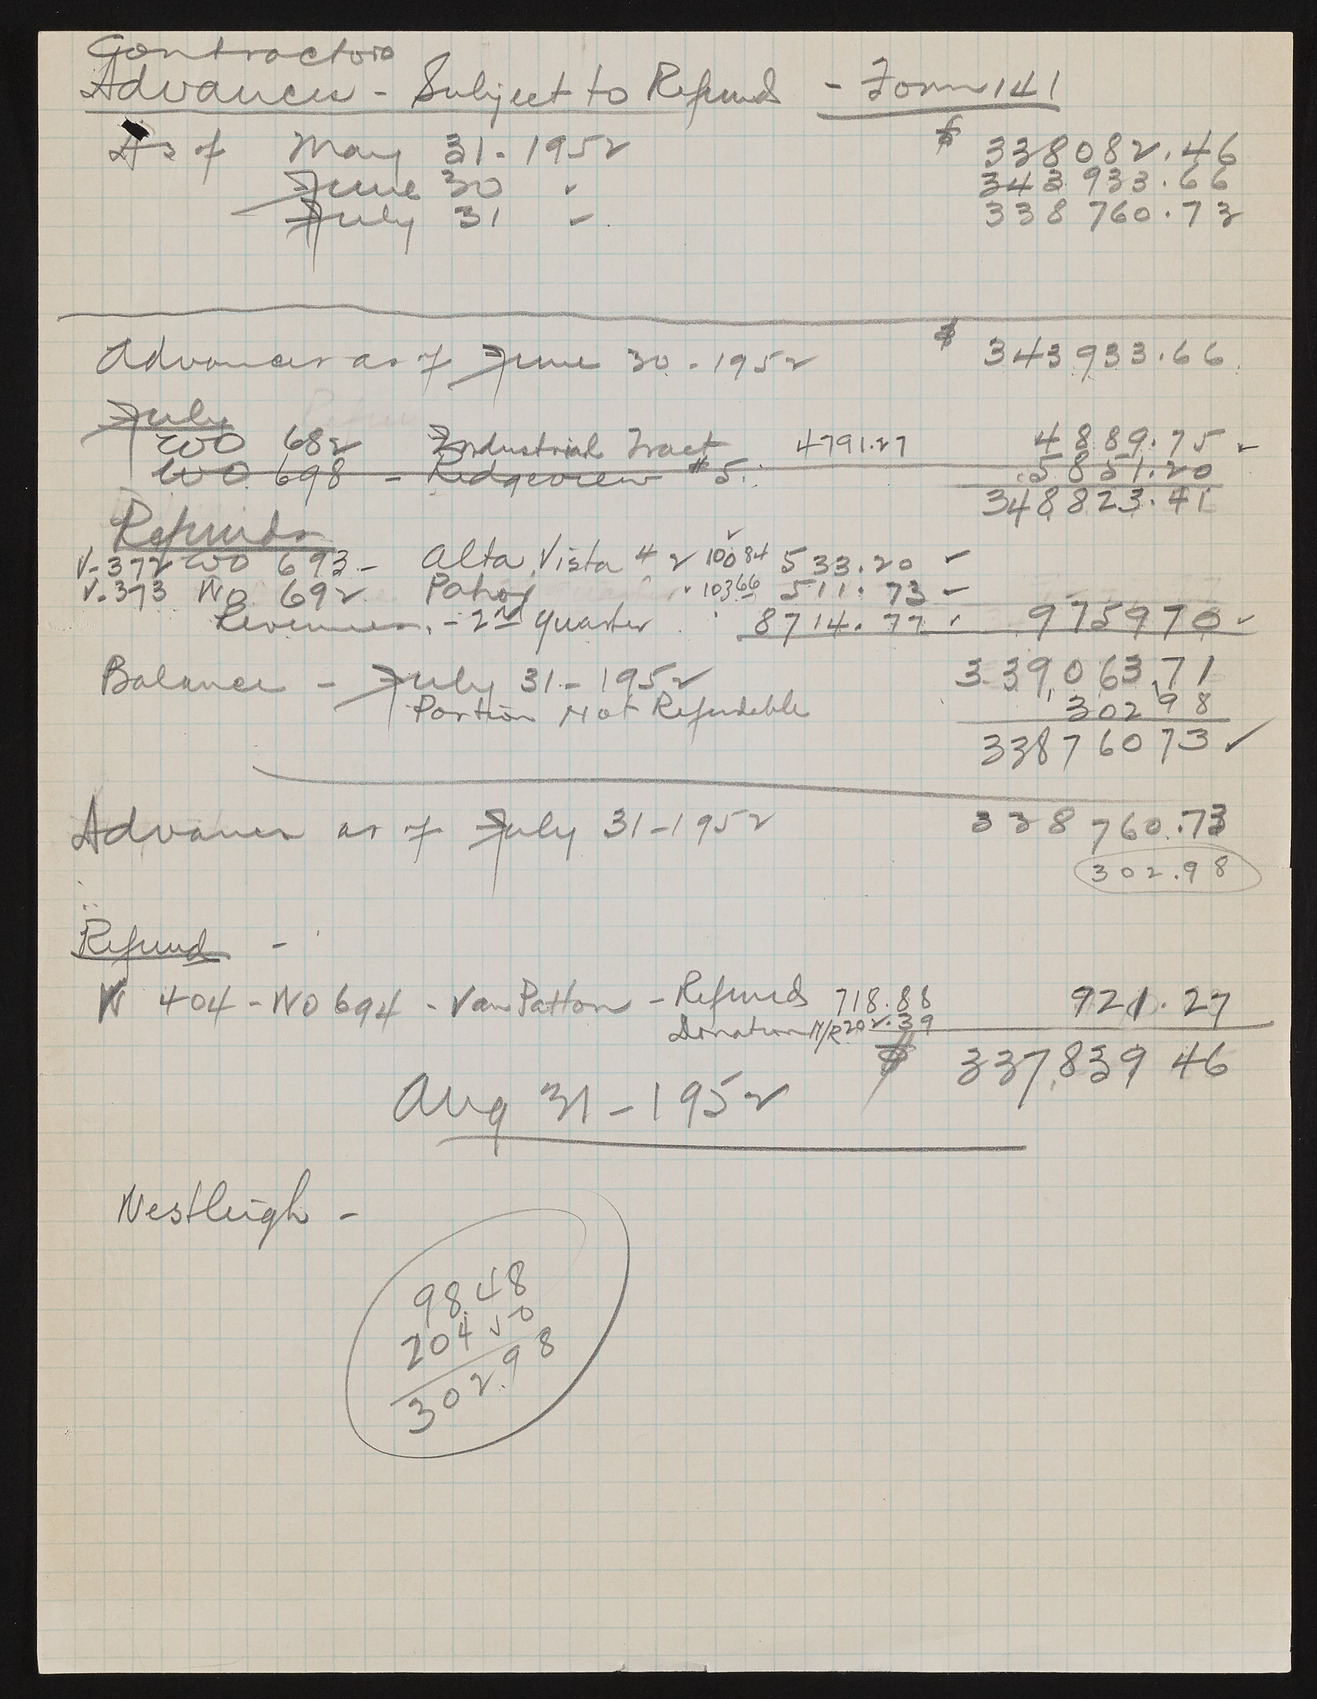 Contractors
Advances - Subject to Refund - Form 141
As of May 31 - 1952 $ 338082.46
June 30 " 343 933.66
July 31 " 338 760.73
Advances as of June 30 - 1952 $ 343933.66
July
WO 682 Industrial Tract 4791.27 4889.75 ✓
WO 698 - Ridgeview #5. 5851.20
348823.41
Refunds
V-372 WO 693 - Alta Vista # 2 10084 533.20 ✓
V-373 WO 692 10366 511.73 ✓
Revenues - 2nd Quarter 8714.77 ✓ 975970 ✓
Balance - July 31 - 1952 339,063.71
Portion Not Refundable 302 98
33876073 ✓
Advances as of July 31 - 1952 338 760.73
302.98
Refund -
V 404 - WO 694 - Van Patton - Refund 718.88 921.27
Donation N/R 202.39
$ 337,839 46
Aug 31 - 1952
Westleigh -
98.48
204 50
302.98